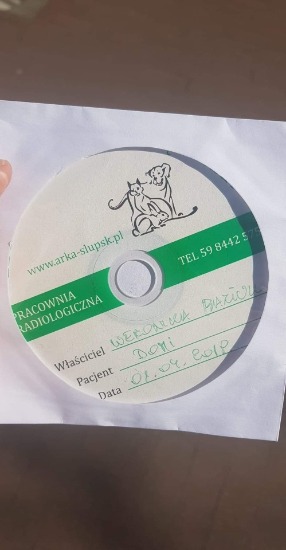 www.arka-slupsk.pl
TEL 59 8442 5
PRACOWNIA
RADIOLOGICZNA
Właściciel WERONIKA
Pacjent DOMI
Data 01.04.2019